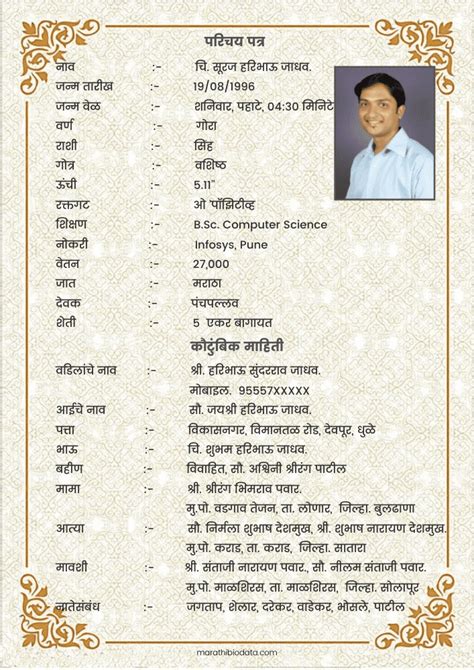 परिचय पत्र
नाव :- चि. सूरज हरिभाऊ जाधव.
जन्म तारीख :- 19/08/1996
जन्म वेळ :- शनिवार, पहाटे, 04:30 मिनिटे
वर्ण :- गोरा
राशी :- सिंह
गोत्र :- वशिष्ठ
ऊंची :- 5.11"
रक्तगट :- ओ 'पॉझिटीव्ह
शिक्षण :- B.Sc. Computer Science
नोकरी :- Infosys, Pune
वेतन :- 27,000
जात :- मराठा
देवक :- पंचपल्लव
शेती :- 5 एकर बागायत
कौटुंबिक माहिती
वडिलांचे नाव :- श्री. हरिभाऊ सुंदरराव जाधव.
मोबाइल. 95557XXXXX
आईचे नाव :- सौ. जयश्री हरिभाऊ जाधव.
पत्ता :- विकासनगर, विमानतळ रोड, देवपूर, धुळे
भाऊ :- चि. शुभम हरिभाऊ जाधव.
बहीण :- विवाहित, सौ. अश्विनी श्रीरंग पाटील
मामा :- श्री. श्रीरंग भिमराव पवार.
मु.पो. वडगाव तेजन, ता. लोणार, जिल्हा. बुलढाणा
आत्या :- सौ. निर्मला शुभाष देशमुख, श्री. शुभाष नारायण देशमुख.
मु.पो. कराड, ता. कराड, जिल्हा. सातारा
मावशी :- श्री. संताजी नारायण पवार., सौ. नीलम संताजी पवार.
मु.पो. माळशिरस, ता. माळशिरस, जिल्हा. सोलापूर
नातेसंबंध :- जगताप, शेलार, दरेकर, वाडेकर, भोसले, पाटील
marathibiodata.com